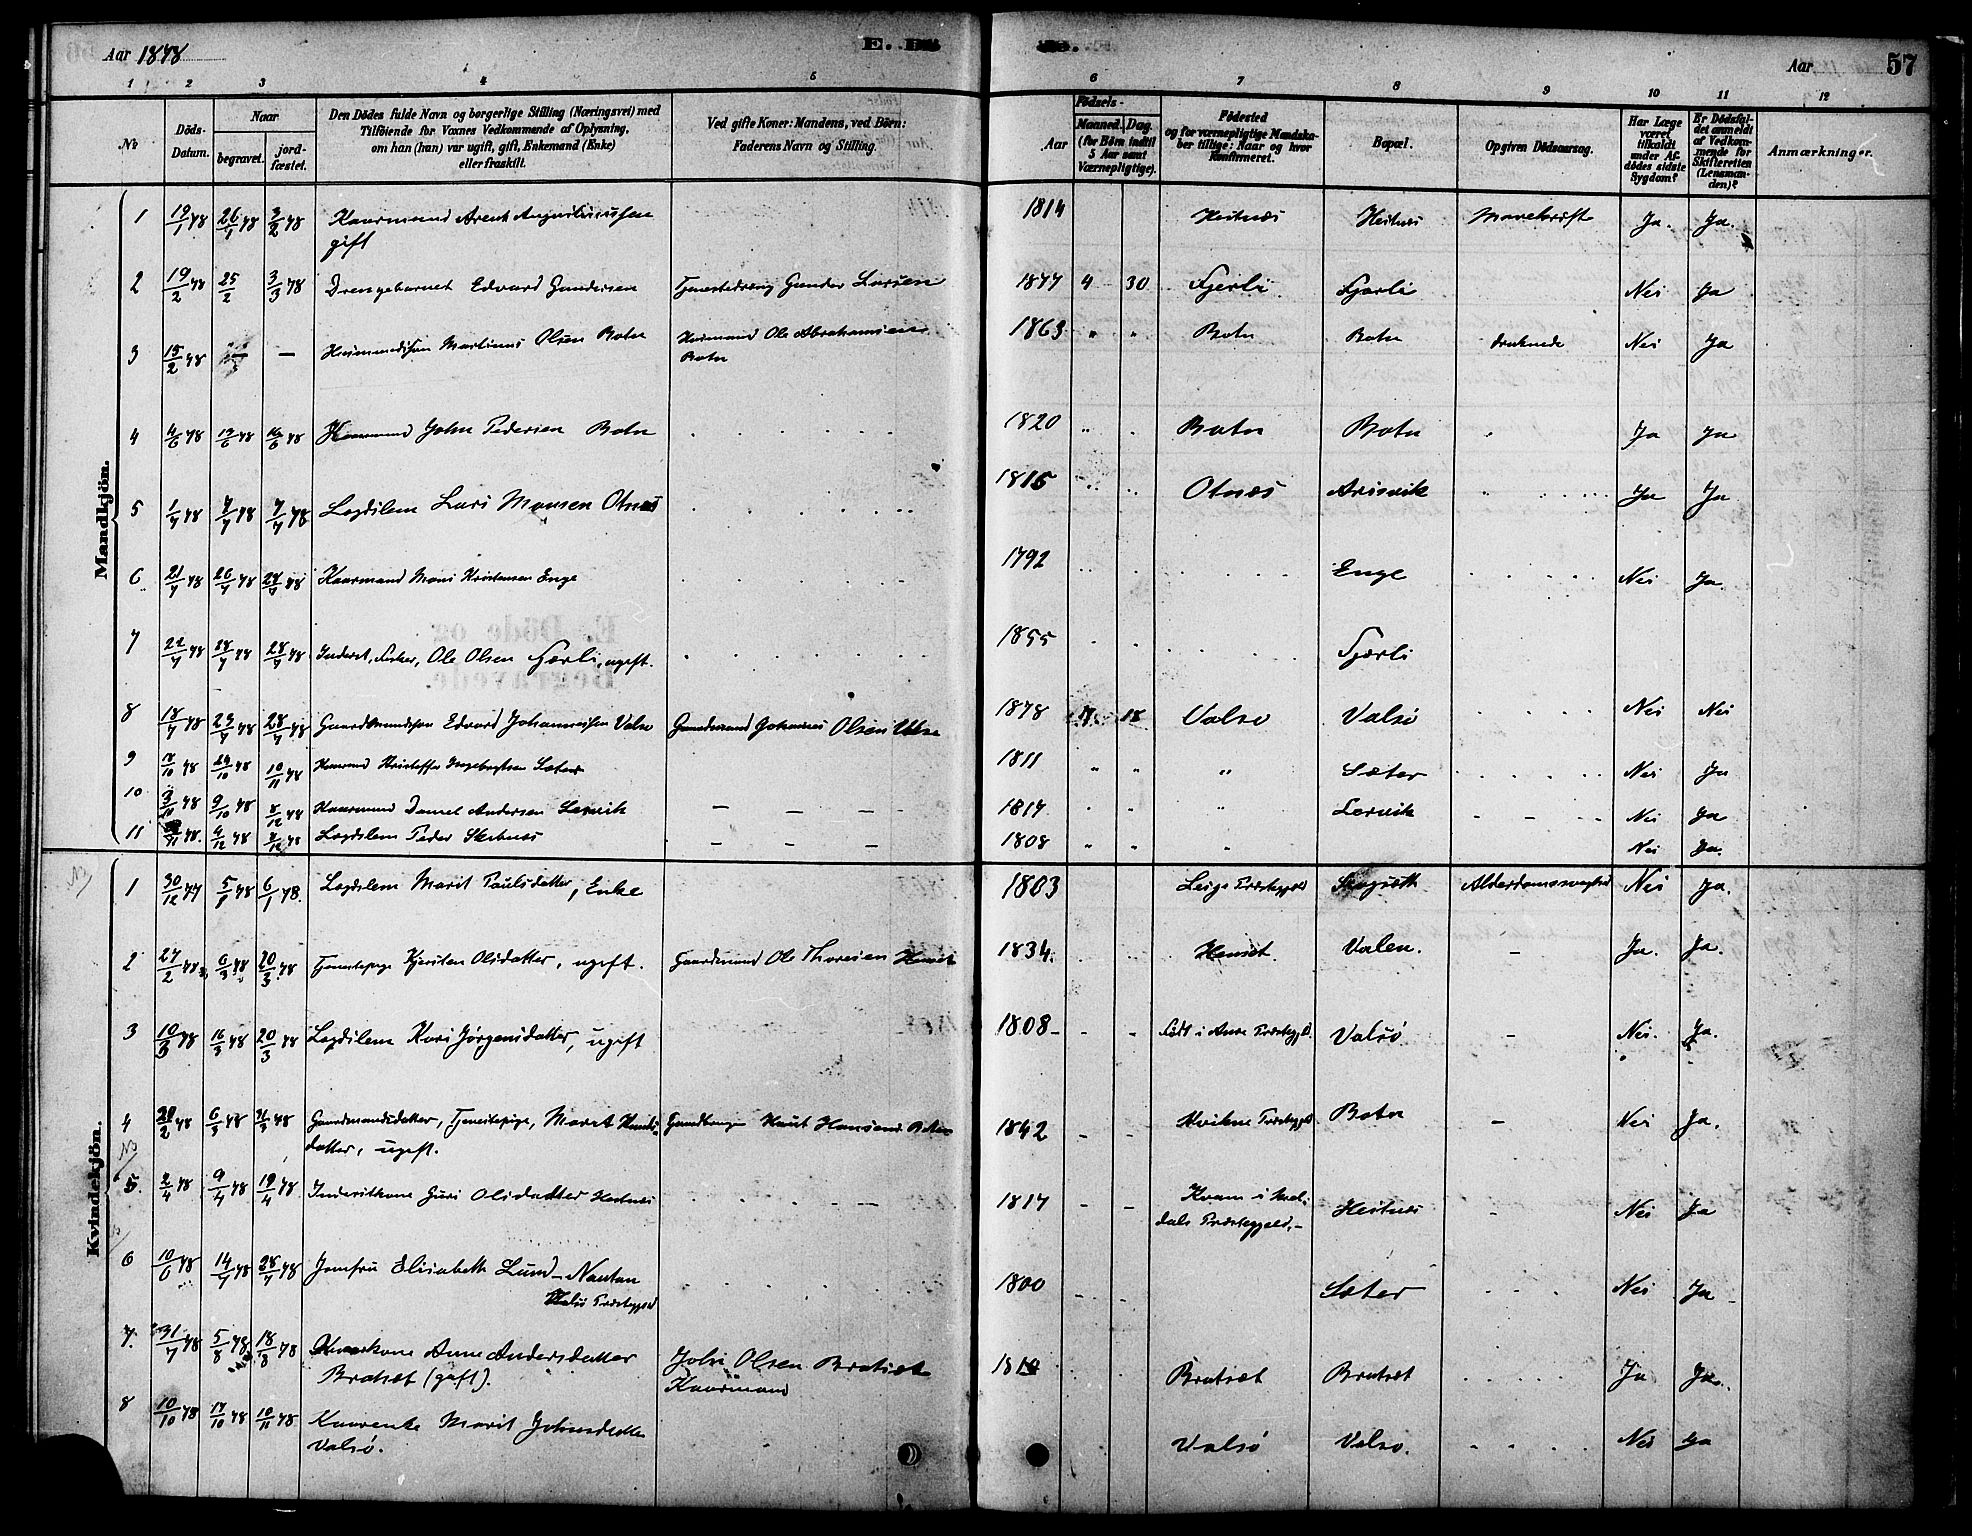 Aar 1878
E. Dø
57
Aar
1 2 3 4 5 6 7 8 9 10 11 12
No
Döds-Datum.
Naar
begravet.
jord-fæstet.
Den Dödes fulde Navn og borgerlige Stilling (Næringsvei) med
Tilföiende for Voxnes Vedkommende af Oplysning,
om han (hun) var ugift, gift, Enkemand (Enke)
eller fraskilt.
Ved gifte Koner: Mandens, ved Börn:
Faderens Navn og Stilling.
Födsels-
Aar
Maaned. Dag.
(for Börn indtil
5 Aar samt
Værnepligtige).
Födested
og for værnepligtige Mandska-
ber tillige: Naar og hvor
konfirmeret.
Bopæl.
Opgiven Dödsaarsag.
Har Læge
været
tilkaldt
under Af-
dödes sidste
Sygdom?
Er Dödsfal-
det anmeldt
af Vedkom-
mende for
Skifteretten
(Lensman-
den)?
Anmærkninger.
Mandkjön.
1 19/1 78 26/1 78 3/2 78 Kaarmand Arent Augustinussen gift 1814 Hestnæs Hestnæs Mavekræft Ja. Ja.
2 19/2 78 25/2 3/3 78 Drengebarnet Edvard Gundersen Tjenestedreng Gunder Larsen 1877 4 30 Fjerli Fjerli Nei Ja
3 15/2 78 — Martinus Olsen Botn Ole Abrahamsen Botn 1863 " " Botn Botn druknede Nei Ja
4 4/6 78 13/6 78 16/6 78 Kaarmand John Pedersen Botn 1820 Botn Botn Ja Ja
5 1/7 78 7/7 78 7/7 78 Lægdslem Lars Monsen Otnæs 1815 Otnæs Arisvik Ja Ja
6 21/7 78 26/7 78 28/7 78 Kaarmand Mons Kristensen Enge 1792 Enge Nei Ja
7 22/7 78 28/7 78 28/7 78 Inderst, Fisker, Ole Olsen Fjærli, ugift. 1855 Fjærli
8 18/7 78 23/7 78 28/7 78 Gaardmandssøn Edvard Johannessen Valsø Gaardmand Johannes Olsen Valsø 1878 18 Valsø Valsö Nei Nei
9 17/10 78 24/10 78 10/11 78 Kaarmand Kristoffer Ingebrigtsen Sæter 1811 " " " Sæter Nei Ja
10 78 9/10 78 8/12 78 Kaarmand Daniel Andersen Lervik — — — 1817 " " " Lervik Nei Ja
11 78. 4/12 78 8/12 78 Lægdslem Peder Skitnæs — — — 1808 " " " Nei Ja.
Kvindekjön.
NB
1 30/12 77 5/1 78 6/1 78. Lægdslem Marit Paulsdatter, Enke 1803 Præstegjeld Alderdomssvaghed Nei Ja.
2 27/2 78 6/3 78 20/3 78 Tjenestepige Kjersten Olsdatter, ugift. Gaardmand Ole Thoresen Henset 1834. Henset. Valen. — Ja. Ja.
3 10/3 78 16/3 78 20/3 78 Lægdslem Kari Jørgensdatter, ugift 1808 - - Født i Aure Præstegjd. Valsø - Nei. Ja.
4 78 6/3 78 78 Gaardmandsdatter, Tjenestepige, Maret Knuts- datter, ugift. Knut Hansen Botn 1842 - - Kvikne Præstegjeld Botn — Nei Ja.
NB
5. 2/4 78 9/4 78 19/4 78 Inderstkone Guri Olsdatter Hestnæs 1817 - - Kvam i Snel- dals Præstegjeld,- Hestnæs - Nei Ja
6 10/6 78 14/7 78 28/7 78 Jomfru Elisabeth Lund - Nantan Halsø Præstegjeld 1800 - - Sæter Nei Ja
7. 31/7 78 5/8 78 18/8 78 Kaarkone Anne Andersdatter Bratset (gift). John Olsen Bratset Kaarmand 1810 Bratset Bratset Ja Ja.
8 10/10 78 17/10 78 10/11 78 Kaarenke Marit Johnsdatter Valsø. Valsø Valsø. Nei Ja